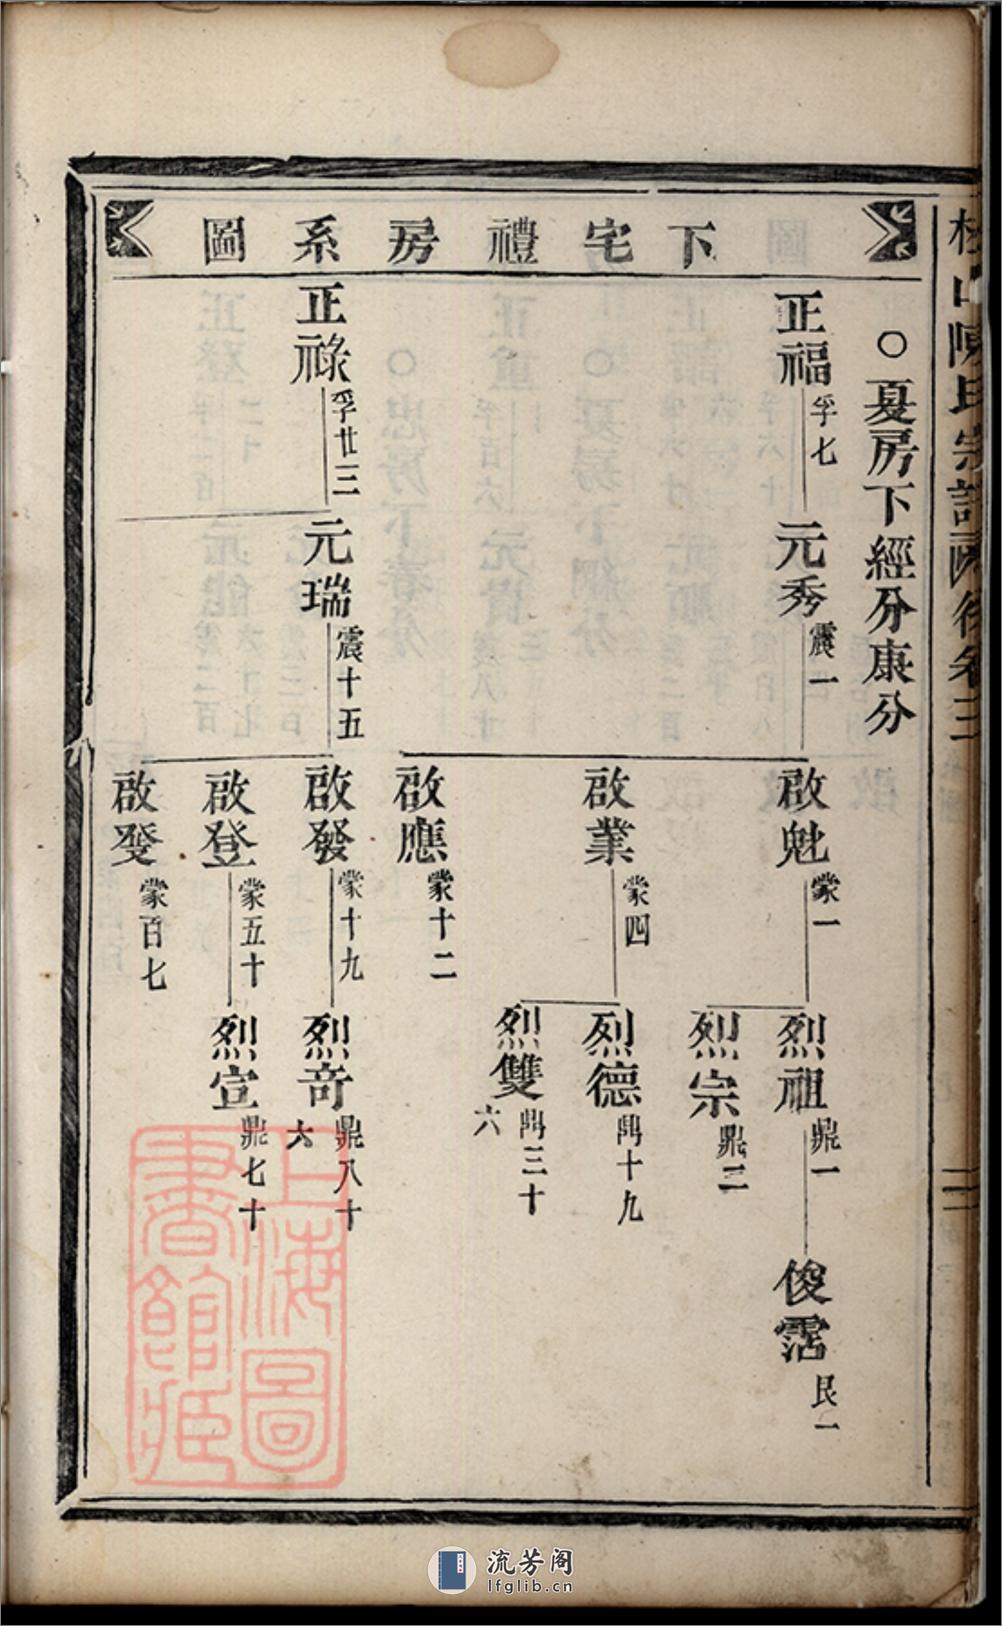 下宅禮房系圖
○夏房下經分康分
正福 孚七
元秀 震一
啟魁 蒙一
烈祖 鼎一
俊霑 艮一
烈宗 鼎二
啟業 蒙四
烈德 鼎十九
烈雙 鼎三十六
啟應 蒙十二
正祿 孚廿三
元瑞 震十五
啟發 蒙十九
烈奇 鼎八十六
啟登 蒙五十
烈宣 鼎七十
啟𤼲 蒙百七
上海圖書館藏
流芳阁
lfglib.cn